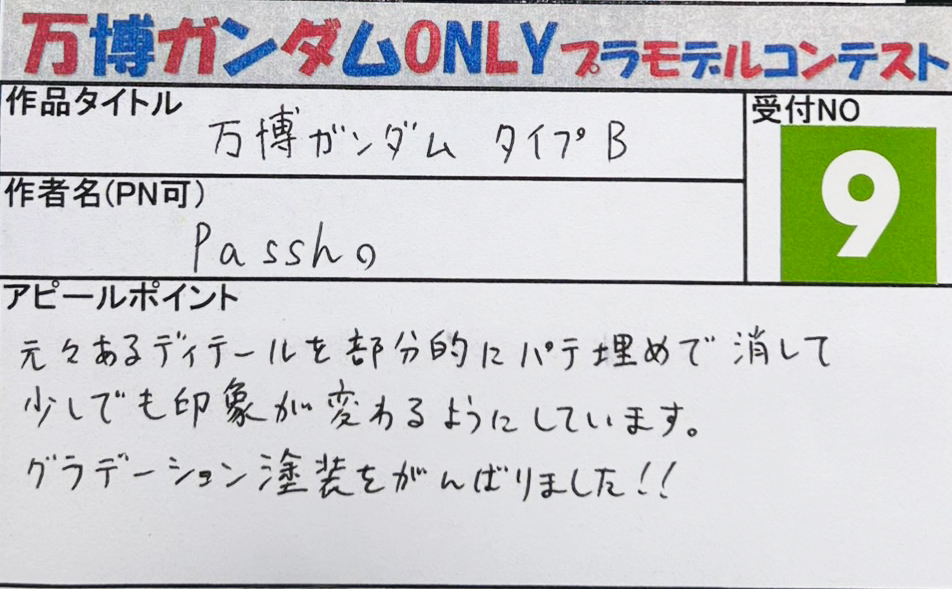 万博ガンダムONLYプラモデルコンテスト
作品タイトル
万博ガンダム タイプB
受付NO
9
作者名(PN可)
Passho
アピールポイント
元々あるディテールを部分的にパテ埋めで消して
少しでも印象が変わるようにしています。
グラデーション塗装をがんばりました!!